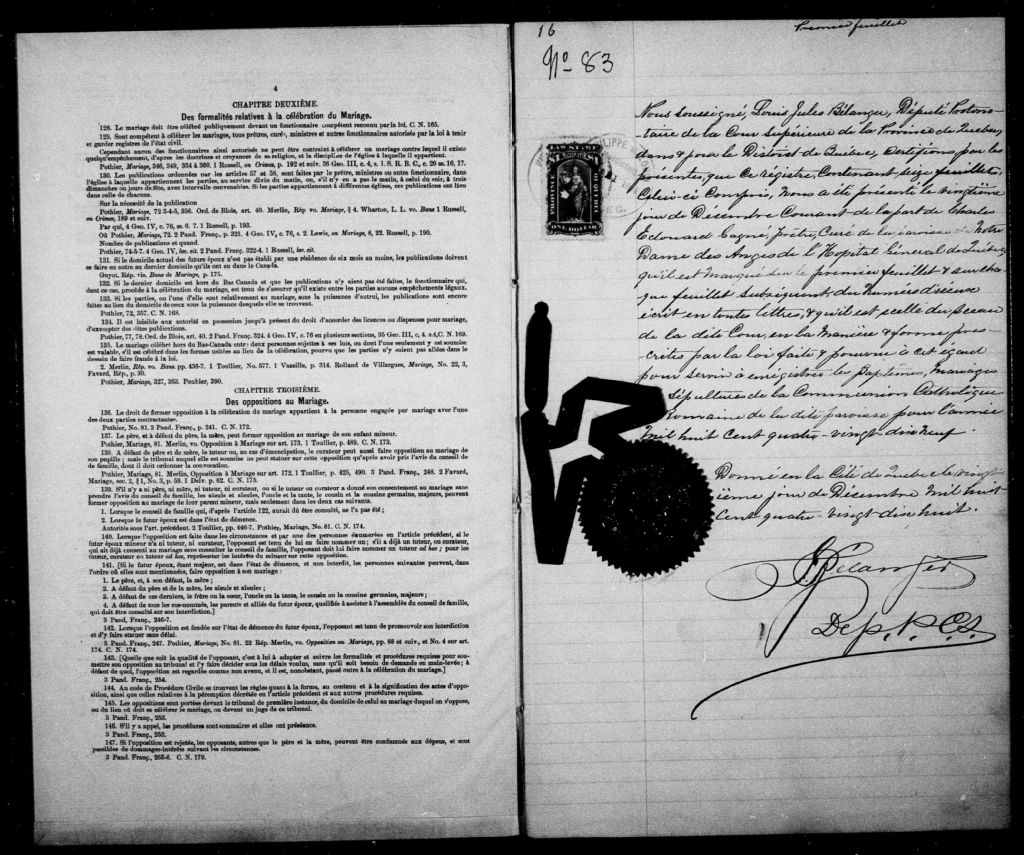 4
CHAPITRE DEUXIÈME.
Des formalités relatives à la célébration du Mariage.
128. Le mariage doit être célébré publiquement devant un fonctionnaire compétent reconnu par la loi. C. N. 165.
129. Sont compétent à célébrer les mariages, tous prêtres, curé, ministres et autres fonctionnaires autorisés par la loi à tenir
et garder registres de l'état civil.
Cependant aucun des fonctionnaires ainsi autorisés ne peut être contraint à célébrer un mariage contre lequel il existe
quelqu'empêchement, d'après les doctrines et croyances de sa religion, et la discipline de l'église à laquelle il appartient.
Pothier, Mariage, 346, 349, 354 à 360, 1 Russell, on Crimes, p. 192 et suiv. 36 Geo. III, c. 4, s. 1. S. R. B. C., c. 20 ss. 16, 17.
130. Les publications ordonnées par les articles 57 et 58, sont faites par le prêtre, ministre ou autre fonctionnaire, dans
l'église à laquelle appartiennent les parties, au service divin du matin, ou, s'il n'y en a pas le matin, à celui du soir, à trois
dimanches ou jours de fête, avec intervalle convenables. Si les parties appartiennent à différentes églises, ces publications ont lieu
dans celle de chacune.
Sur la nécessité de la publication
Pothier, Mariage, 72 3-4-5, 356. Ord. de Blois, art. 40. Merlin, Rép vo. Mariage, § 4. Wharton, L. L. vo. Bans 1 Russell,
on Crimes, 189 et suiv.
Par qui, 4 Geo. IV, c. 76, ss. 6. 7. 1 Russell, p. 193.
Où Pothier, Mariage, 72. 2 Pand. Franç., p. 321. 4 Geo. IV, c. 76, s. 2. Lewis, on Mariage, 8, 22. Russell, p. 190.
Nombre de publications et quand.
Pothier, 74-5-7. 4 Geo. IV, loc. cit. 2 Pand. Franç. 322-4. 1 Russell, loc. cit.
131. Si le domicile actuel des futurs époux n'est pas établi par une résidence de six mois au moins, les publications doivent
se faire en outre au dernier domicile qu'ils ont eu dans le Canada.
Guyot. Rép. vis. Bans de Mariage, p. 175.
132. Si le dernier domicile est hors du Bas Canada et que les publications n'y aient pas été faites, le fonctionnaire qui,
dans ce cas, procède à la célébration du mariage, est tenu de s'assurer qu'il existe entre les parties aucuns empêchements légaux.
133. Si les parties, ou l'une d'elle sont relativement au mariage, sous la puissance d'autrui, les publications sont encore
faites au lieu du domicile de ceux sous la puissance desquels elle se trouvent.
Pothier, 72, 357. C. N. 168.
134. Il est loisible aux autorité en possession jusqu'à présent du droit d'accorder des licences ou dispenses pour mariage,
d'exempter des dites publications.
Pothier, 77, 78. Ord. de Blois, art. 40. 2 Pand. Franç. 324. 4 Geo. IV, c. 76 en plusieurs sections, 35 Geo. III, c. 4, s. 4, C. N. 169.
135. Le mariage célébré hors du Bas-Canada entre deux personnes sujettes à ses lois, ou dont l'une seulement y est soumise
est valable, s'il est célébré dans les formes usitées au lieu de la célébration, pourvu que les parties n'y soient pas allées dans le
dessein de faire fraude à la loi.
2. Merlin, Rép. vo. Bans. pp. 436-7. 1 Toullier, No. 577. 1 Vazeille, p. 314. Rolland de Villargues, Mariage, No. 22, 3,
Favard, Rép., p. 30.
Pothier, Mariage, 327, 363. Pouhier, 390.
CHAPITRE TROISIÈME.
Des oppositions au Mariage.
136. Le droit de former opposition à la célébration du mariage appartient à la personne engagée par mariage avec l'une
des deux parties contractantes.
Pothier, No. 81. 3 Pand. Franç., p. 241. C. N. 172.
137. Le père, et à défaut du père, la mère, peut former opposition au mariage de son enfant mineur.
Pothier, Mariage, 81. Merlin, vo. Opposition à Mariage sur art. 173. 1 Toullier, p. 489. C. N. 173.
138. A défaut de père et de mère, le tuteur ou, au cas d'émancipation, le curateur peut aussi faire opposition au mariage de
son pupille; mais le tribunal auquel elle est soumise ne peut statuer sur cette opposition qu'après avoir pris l'avis du conseil de
de famille, dont il doit ordonner la convocation.
Pothier, Mariage, 81. Merlin, Opposition à Mariage sur art. 172. 1 Toullier, p. 425, 490. 3 Pand. Franç., 248. 2 Favard,
Mariage, sec. 2, § 1, No. 3, p. 59. 1 Delv. p. 62. C. N. 175.
139. S'il n'y a ni père, ni mère, ni tuteur, ni curateur, ou si le tuteur ou curateur a donné son consentement au mariage sans
prendre l'avis du conseil de famille, les aïeuls et aïeules, l'oncle et la tante, le cousin et la cousine germains, majeurs, peuvent
former opposition au mariage de leur parent mineur, mais seulement dans les deux cas suivants.
1. Lorsque le conseil de famille qui, d'après l'article 122, aurait dû être consulté, ne l'a pas été;
2. Lorsque le futur époux est dans l'état de démence.
Autorités sous l'art. précédent. 2 Toullier, pp. 446-7. Pothier, Mariage, No. 81. C. N. 174.
140. Lorsque opposition est faite dans les circonstances et par une des personnes énumérées en l'article précédent, si le
futur époux mineur n'a ni tuteur, ni curateur, l'opposant est tenu de lui en faire nommer un; s'il a déjà un tuteur, ou curateur,
qui ait déjà consenti au mariage sans consulter le conseil de famille, l'opposant doit lui faire nommer un tuteur ad hoc; pour les
tuteur, curateur ou tuteur ad hoc, représenter les intérêts du mineur sur cette opposition.
141. [Si le futur époux, étant majeur, est dans l'état de démence, et non interdit, les personnes suivantes peuvent, dans
l'ordre où elles sont mentionnées, faire opposition à son mariage:
1. Le père, et, à son défaut, la mère;
2. A défaut du père et de la mère, les aïeuls et aïeules;
3. A défaut de ces derniers, le frère ou la sœur, l'oncle ou la tante, le cousin ou la cousine germains, majeurs;
4. A défaut de tous les sus-nommés, les parents et alliés du futur époux, qualifiés à assister à l'assemblée du conseil de famille,
qui doit être consulté sur son interdiction.]
3 Pand. Franç., 246-7.
142. Lorsque l'opposition est fondée sur l'état de démence du futur époux, l'opposant est tenu de promouvoir son interdiction
et d'y faire statuer sans délai.
3 Pand. Franç., 247. Pothier, Mariage, No. 81. 22 Rép. Merlin, vo. Opposition au Mariage, pp. 88 et suiv., et No. 4 sur art.
174. C. N. 174.
143. [Quelle que soit la qualité de l'opposant, c'est à lui à adopter et suivre les formalités et procédures requises pour sou-
mettre son opposition au tribunal et l'y faire décider sous les délais voulus, sans qu'il soit besoin de demande en main-levée; à
défaut de quoi, l'opposition est regardée comme non avenue, et il est, nonobstant, passé outre à la célébration du mariage.]
3 Pand. Franç., 254.
144. Au code de Procédure Civile se trouvent les règles quant à la forme, au contenu et à la signification des actes d'oppo-
sition, ainsi que celles relatives à la péremption décrétée en l'article précédent et aux autres procédures requises.
145. Les oppositions sont portées devant le tribunal de première instance, du domicile de celui au mariage duquel on s'oppose,
ou du lieu où doit se célébrer le mariage, ou devant un juge de ce tribunal.
3 Pand. Franç., 253.
146. S'il y a appel, les procédures sont sommaires et elles ont préséance.
3 Pand. Franç., 253.
147. Si l'opposition est rejetée, les opposants, autres que le père et la mère, peuvent être condamnés aux dépens, et sont
passibles de dommages-intérêts suivant les circonstances.
3 Pand. Franç., 255-6. C. N. 179.
16
No 83
Premier feuillet
LAW STAMP
PROVINCE
ONE DOLLAR
Nous soussigné, Louis Jules Bélanger, Député Protono-
taire de la Cour supérieure de la Province de Québec,
dans & pour le District de Québec, certifions par les
présentes, que ce registre, contenant seize feuillets,
Celui-ci compris, nous a été présenté le vingtième
jour de Décembre Courant de la part de Charles
Edouard Gagné, prêtre, Curé de la paroisse de Notre
Dame des Anges de l'Hopital Général de Québec
qu'il est marqué sur le premier feuillet & sur cha-
que feuillet subséquent du numéro d'iceux
écrit en toutes lettres, & qu'il est scellé du sceau
de la dite Cour, en la manière & forme pres-
crites par la loi faite & pourvue à cet égard
pour servir à enrégistrer les Baptêmes, Mariages
& Sépultures de la Communion Catholique
Romaine de la dite paroisse pour l'année
Mil huit Cent quatre-vingt-dix neuf.
Donné en la Cité de Québec le vingt-
ième jour de Décembre Mil huit
Cent-quatre-vingt dix huit.
Bélanger
Dép. P. C. S.